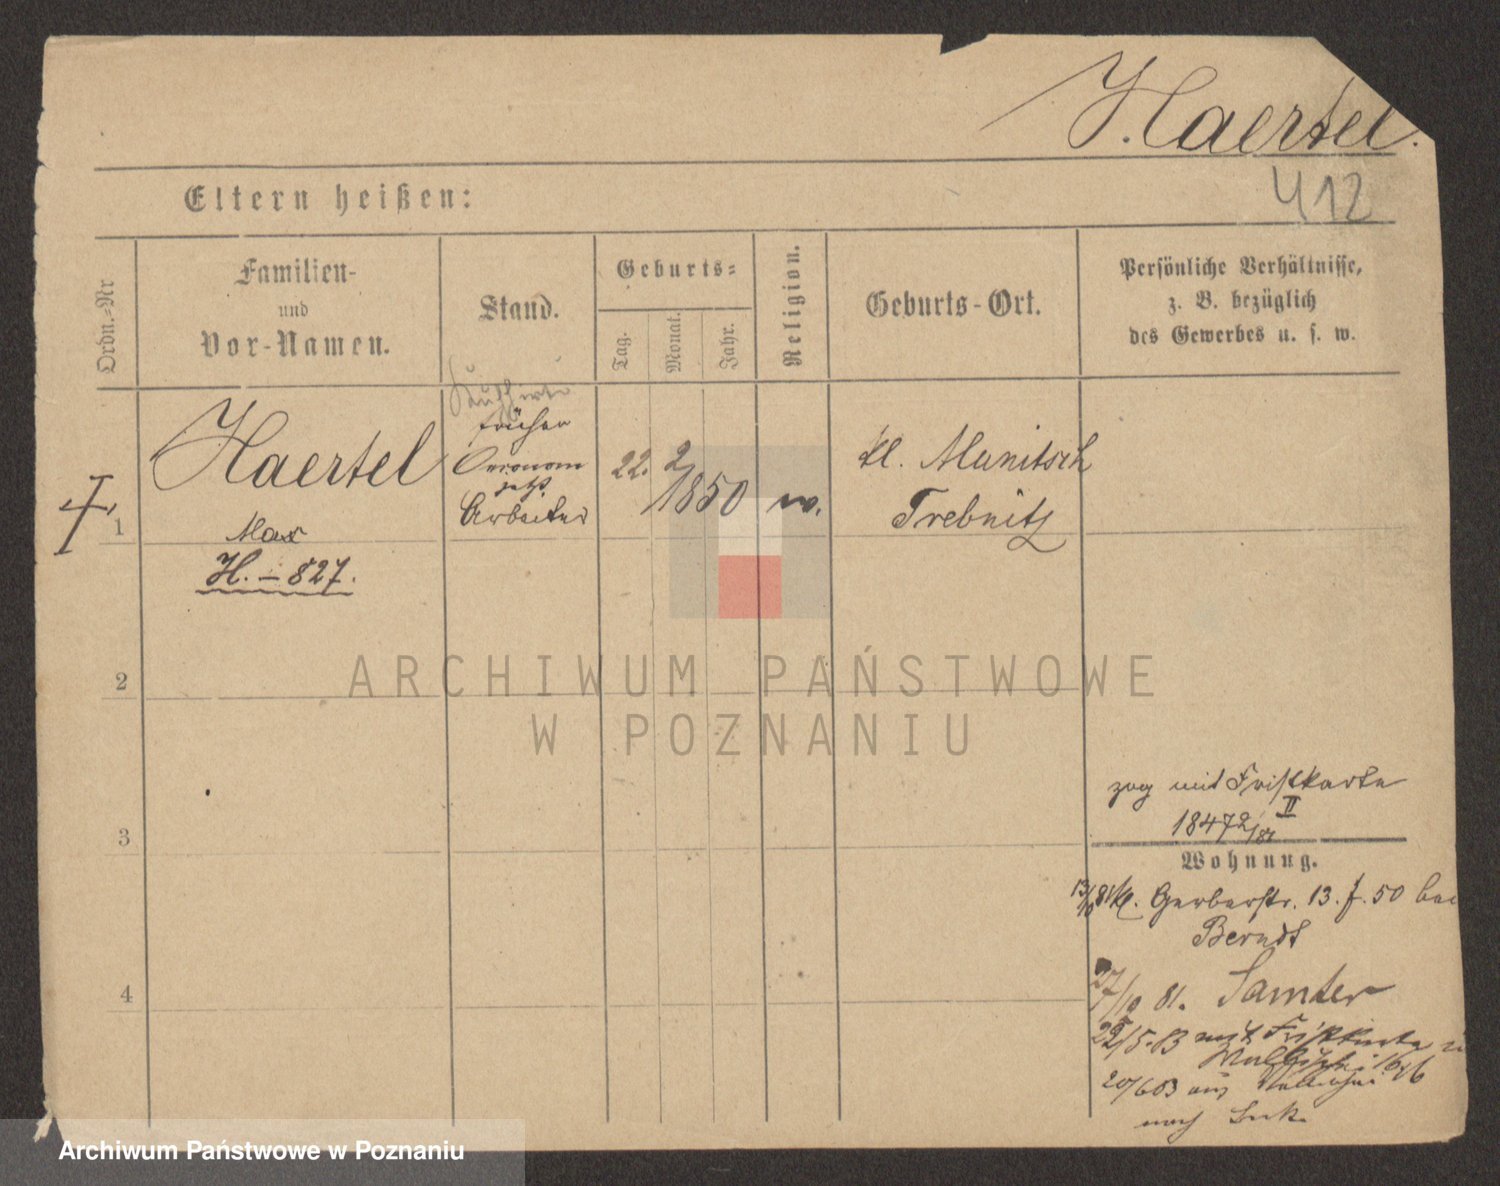 Haertel.
412
Eltern heißen:
Ordn.=Nr
Familien-
und
Vor-Namen.
Stand.
Geburts=
Tag.
Monat.
Jahr.
Religion.
Geburts-Ort.
Persönliche Verhältnisse,
z. B. bezüglich
des Gewerbes u. s. w.
1
Haertel
Max
H. – 827.
früher
Oeconom
jetzt
Arbeiter
22. 2 1850
kl. Munitsch
Trebnitz
2
3
4
zog mit Fristkarte
18472/81 II
Wohnung.
13/10 81 kl. Gerberstr. 13. f. 50 bei
Berndt
27/10 81. Samter
22/5.83 mit Fristkarte
20/6 83 aus
nach
ARCHIWUM PAŃSTWOWE
W POZNANIU
Archiwum Państwowe w Poznaniu